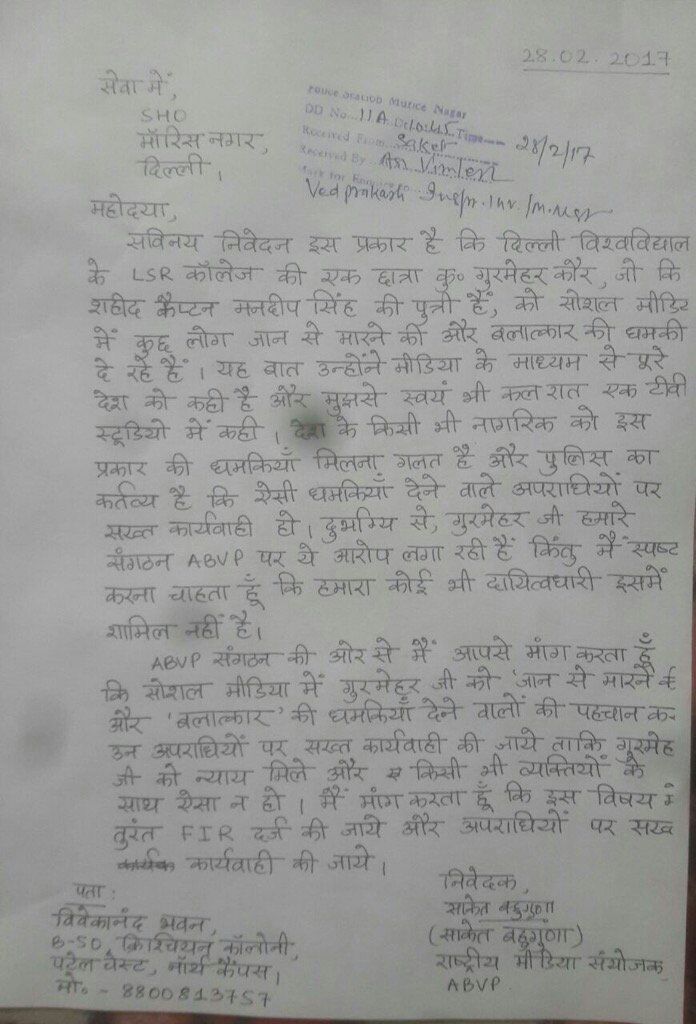 28.02.2017
सेवा में,
SHO
मॉरिस नगर,
दिल्ली।
POLICE STATION Maurice Nagar
DD No. 11A Dt 10:45 Time
28/2/17
Received From Saket
Received By ASI
Ved prakash
महोदया,
सविनय निवेदन इस प्रकार है कि दिल्ली विश्वविद्याल
के LSR कॉलेज की एक छात्रा कु० गुरमेहर कौर, जो कि
शहीद कैप्टन मनदीप सिंह की पुत्री हैं, को सोशल मीडि
में कुछ लोग जान से मारने की और बलात्कार की धमकी
दे रहे हैं। यह बात उन्होंने मीडिया के माध्यम से पूरे
देश को कही है और मुझसे स्वयं भी कल रात एक टीवी
स्टूडियो में कही। देश के किसी भी नागरिक को इस
प्रकार की धमकियाँ मिलना गलत है और पुलिस का
कर्तव्य है कि ऐसी धमकियाँ देने वाले अपराधियों पर
सख्त कार्यवाही हो। दुर्भाग्य से, गुरमेहर जी हमारे
संगठन ABVP पर ये आरोप लगा रही हैं किंतु मैं स्पष्ट
करना चाहता हूँ कि हमारा कोई भी दायित्वधारी इसमें
शामिल नहीं है।
ABVP संगठन की ओर से मैं आपसे मांग करता हूँ
कि सोशल मीडिया में गुरमेहर जी को 'जान से मारने
और 'बलात्कार' की धमकियाँ देने वालों की पहचान कर
उन अपराधियों पर सख्त कार्यवाही की जाये ताकि गुरमेह
जी को न्याय मिले और किसी भी व्यक्तियों के
साथ ऐसा न हो। मैं मांग करता हूँ कि इस विषय में
तुरंत FIR दर्ज की जाये और अपराधियों पर सख्
कार्यवाही की जाये।
निवेदक,
साकेत बहुगुणा
(साकेत बहुगुणा)
राष्ट्रीय मीडिया संयोजक
ABVP
पता:
विवेकानंद भवन,
B-50, क्रिश्चियन कॉलोनी,
पटेल चेस्ट, नॉर्थ कैंपस।
मो० - 8800813757